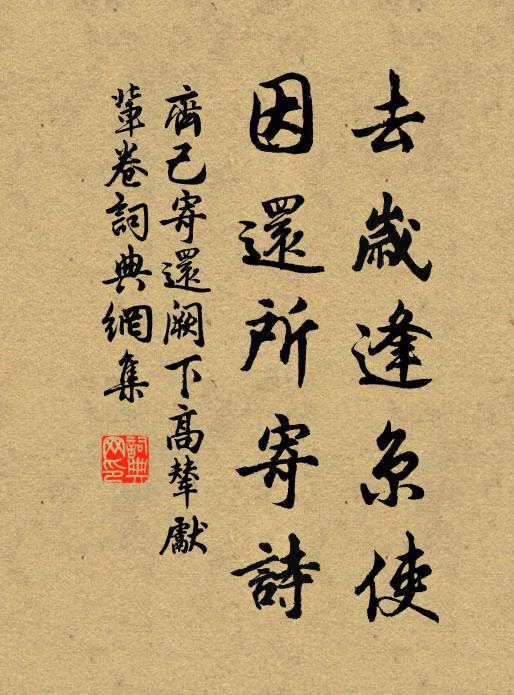 去歲逢京使
因還所寄詩
齊己寄還闕下高輦獻
輩卷詞典網集
詞典
网印